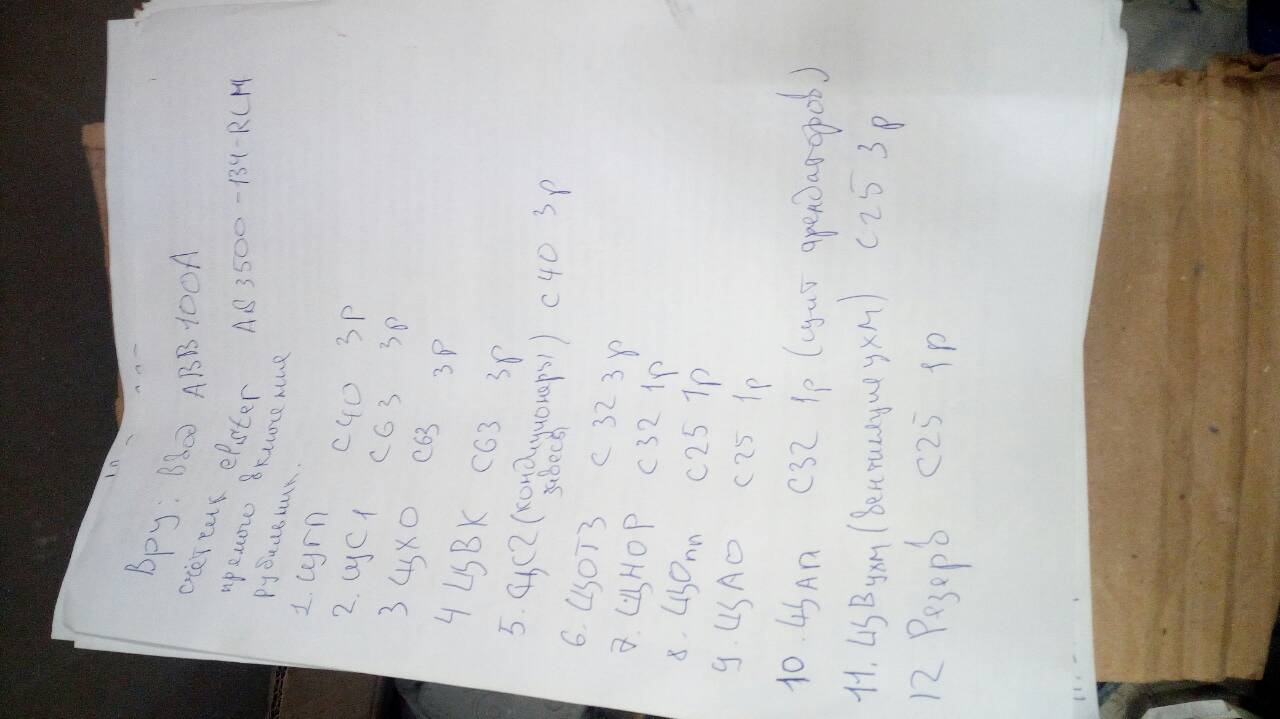 Вру: Ввод ABB 100A
счётчик
прямого включения AD 3500 - 134-RLM
рубильник.
1. ЩГП С40 3р
2. ЩС1 С63 3р
3 ЩХО С63 3р
4 ЩВК С63 3р
5. ЩС2 (кондиционеры) С40 3р
завесы
6. ЩОТЗ С 32 3р
7. ЩНОР С32 1р
8. ЩОпп С25 1р
9. ЩАО С25 1р
10. ЩАП С32 1р (щит арендаторов)
11. ЩВухм (вентиляция ухм) С25 3р
12 Резерв С25 1р